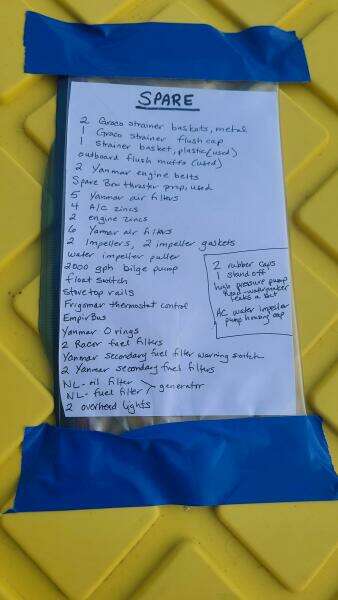 SPARE
2 Groco strainer baskets, metal
1 Groco strainer flush cap
1 strainer basket, plastic (used)
outboard flush muffs (used)
2 Yanmar engine belts
Spare Bow thruster prop, used
5 Yanmar air filters
4 A/C zincs
2 engine zincs
6 Yamar air filters
2 Impellers, 2 impeller gaskets
water impeller puller
2000 gph bilge pump
float switch
Stove top rails
Frigomar thermostat control
EmpirBus
Yanmar O rings
2 Racor fuel filters
Yanmar secondary fuel filter warning switch
2 Yanmar secondary fuel filters
NL- oil filter
NL- fuel filter > generator
2 overhead lights
2 rubber caps
1 stand off
high pressure pump
from watermaker
leaks a bit
AC water impeller
pump housing cap